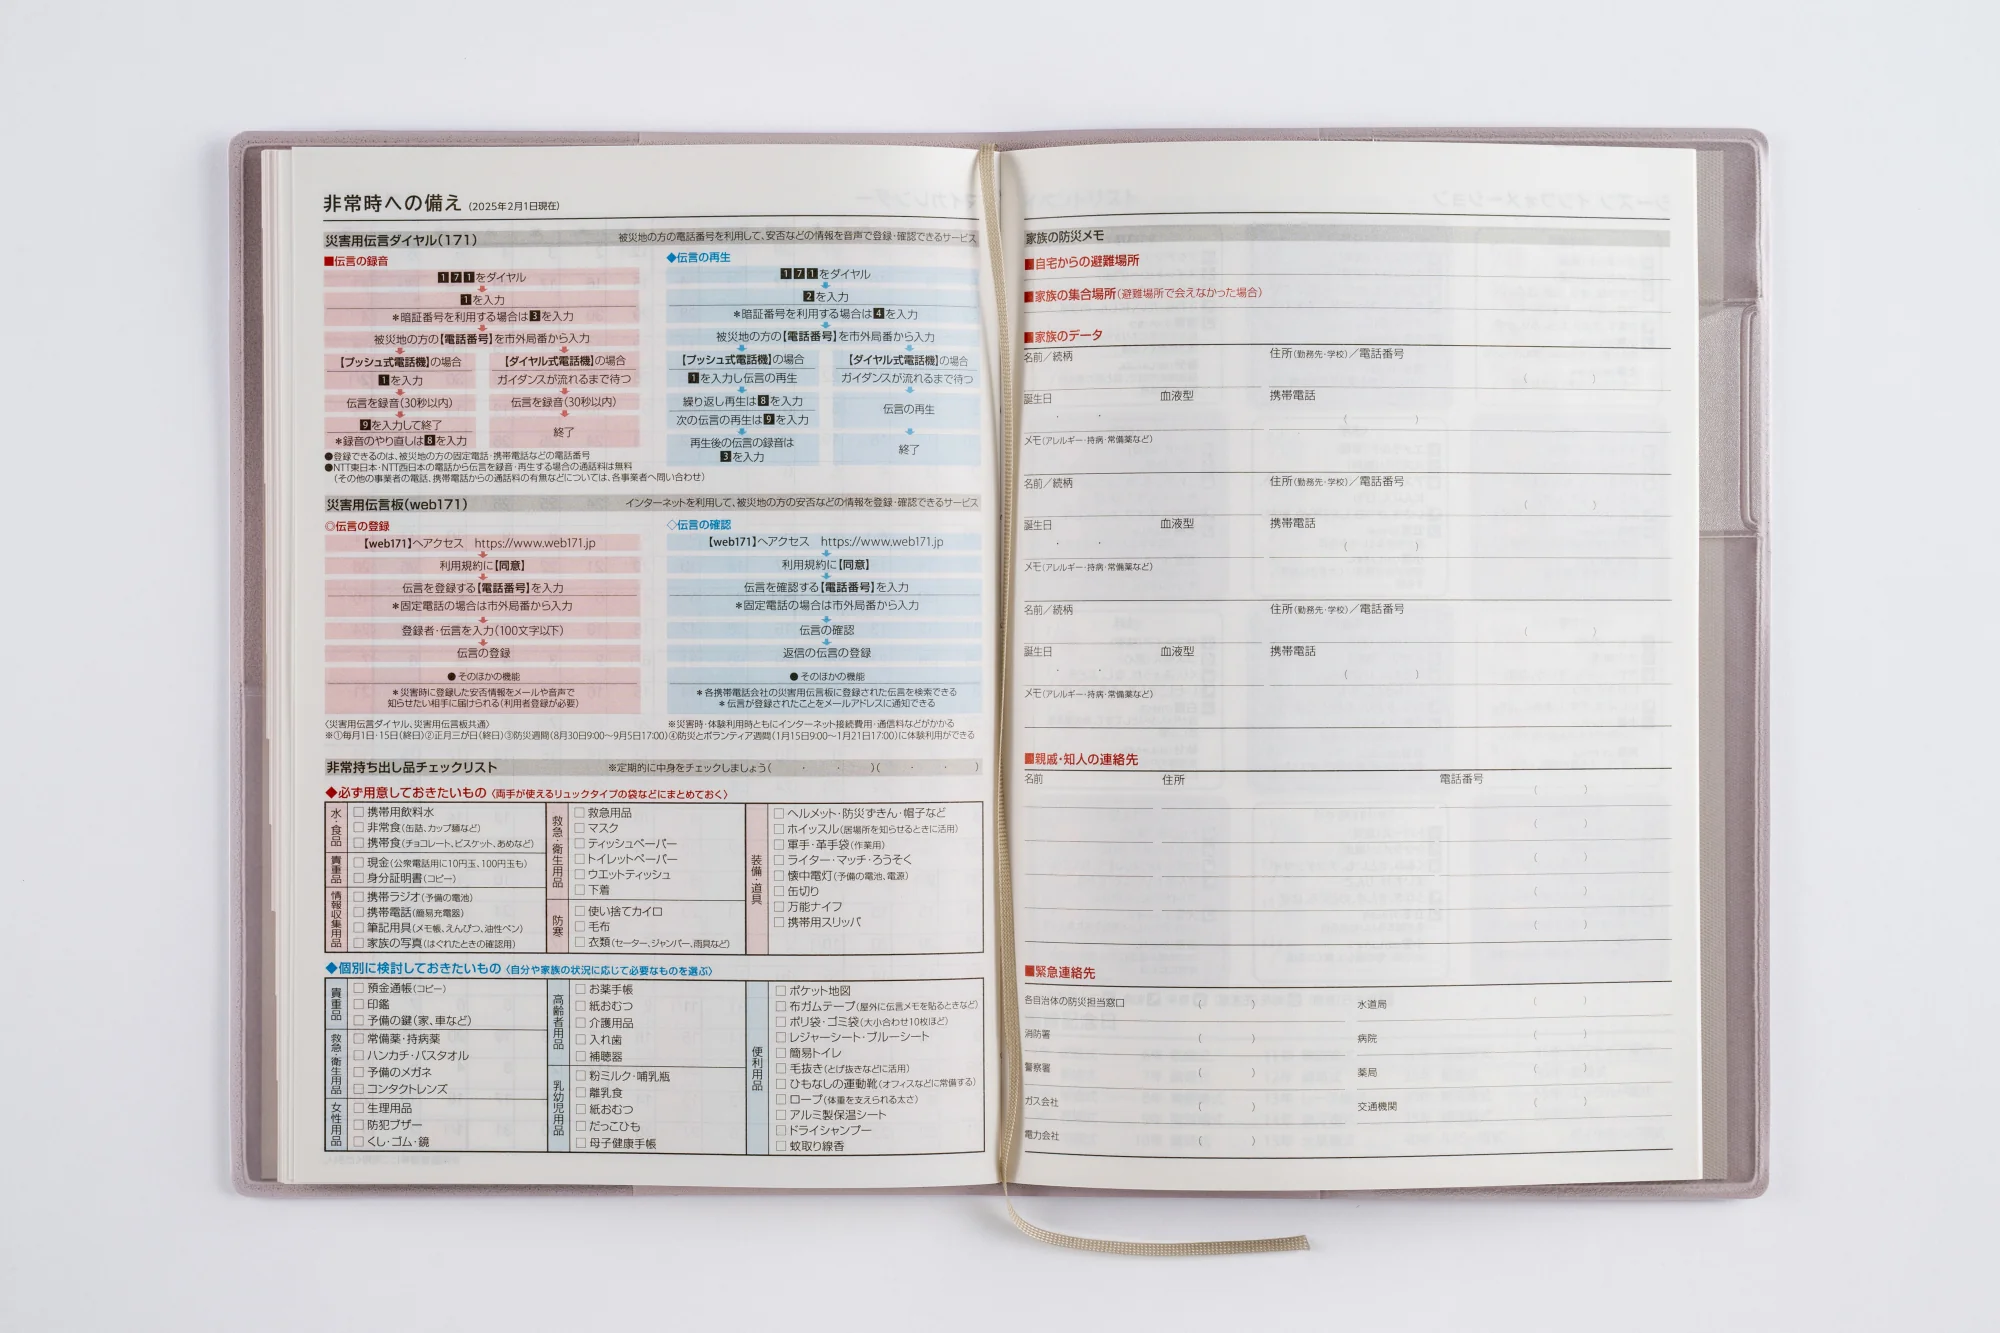 非常時への備え (2025年2月1日現在)
災害用伝言ダイヤル(171) 被災地の方の電話番号を利用して、安否などの情報を音声で登録・確認できるサービス
■伝言の録音
171をダイヤル
1を入力
*暗証番号を利用する場合は3を入力
被災地の方の【電話番号】を市外局番から入力
【プッシュ式電話機】の場合 【ダイヤル式電話機】の場合
1を入力 ガイダンスが流れるまで待つ
伝言を録音(30秒以内) 伝言を録音(30秒以内)
9を入力して終了 終了
*録音のやり直しは8を入力
◆伝言の再生
171をダイヤル
2を入力
*暗証番号を利用する場合は4を入力
被災地の方の【電話番号】を市外局番から入力
【プッシュ式電話機】の場合 【ダイヤル式電話機】の場合
1を入力し伝言の再生 ガイダンスが流れるまで待つ
繰り返し再生は8を入力 伝言の再生
次の伝言の再生は9を入力
再生後の伝言の録音は 終了
3を入力
●登録できるのは、被災地の方の固定電話・携帯電話などの電話番号
●NTT東日本・NTT西日本の電話から伝言を録音・再生する場合の通話料は無料
(その他の事業者の電話、携帯電話からの通話料の有無などについては、各事業者へ問い合わせ)
災害用伝言板(web171) インターネットを利用して、被災地の方の安否などの情報を登録・確認できるサービス
◎伝言の登録
【web171】へアクセス https://www.web171.jp
利用規約に【同意】
伝言を登録する【電話番号】を入力
*固定電話の場合は市外局番から入力
登録者・伝言を入力(100文字以下)
伝言の登録
●そのほかの機能
*災害時に登録した安否情報をメールや音声で
知らせたい相手に届けられる(利用者登録が必要)
◇伝言の確認
【web171】へアクセス https://www.web171.jp
利用規約に【同意】
伝言を確認する【電話番号】を入力
*固定電話の場合は市外局番から入力
伝言の確認
返信の伝言の登録
●そのほかの機能
*各携帯電話会社の災害用伝言板に登録された伝言を検索できる
*伝言が登録されたことをメールアドレスに通知できる
〈災害用伝言ダイヤル、災害用伝言板共通〉 ※災害時・体験利用時ともにインターネット接続費用・通信料などがかかる
※①毎月1日・15日(終日)②正月三が日(終日)③防災週間(8月30日9:00〜9月5日17:00)④防災とボランティア週間(1月15日9:00〜1月21日17:00)に体験利用ができる
非常持ち出し品チェックリスト ※定期的に中身をチェックしましょう( ・ ・ )( ・ ・ )
◆必ず用意しておきたいもの〈両手が使えるリュックタイプの袋などにまとめておく〉
水・食品
□携帯用飲料水
□非常食(缶詰、カップ麺など)
□携帯食(チョコレート、ビスケット、あめなど)
貴重品
□現金(公衆電話用に10円玉、100円玉も)
□身分証明書(コピー)
情報収集用品
□携帯ラジオ(予備の電池)
□携帯電話(簡易充電器)
□筆記用具(メモ帳、えんぴつ、油性ペン)
□家族の写真(はぐれたときの確認用)
救急・衛生用品
□救急用品
□マスク
□ティッシュペーパー
□トイレットペーパー
□ウエットティッシュ
□下着
防寒
□使い捨てカイロ
□毛布
□衣類(セーター、ジャンパー、雨具など)
装備・道具
□ヘルメット・防災ずきん・帽子など
□ホイッスル(居場所を知らせるときに活用)
□軍手・革手袋(作業用)
□ライター・マッチ・ろうそく
□懐中電灯(予備の電池、電源)
□缶切り
□万能ナイフ
□携帯用スリッパ
◆個別に検討しておきたいもの〈自分や家族の状況に応じて必要なものを選ぶ〉
貴重品
□預金通帳(コピー)
□印鑑
□予備の鍵(家、車など)
救急・衛生用品
□常備薬・持病薬
□ハンカチ・バスタオル
□予備のメガネ
□コンタクトレンズ
女性用品
□生理用品
□防犯ブザー
□くし・ゴム・鏡
高齢者用品
□お薬手帳
□紙おむつ
□介護用品
□入れ歯
□補聴器
乳幼児用品
□粉ミルク・哺乳瓶
□離乳食
□紙おむつ
□だっこひも
□母子健康手帳
便利用品
□ポケット地図
□布ガムテープ(屋外に伝言メモを貼るときなど)
□ポリ袋・ゴミ袋(大小合わせ10枚ほど)
□レジャーシート・ブルーシート
□簡易トイレ
□毛抜き(とげ抜きなどに活用)
□ひもなしの運動靴(オフィスなどに常備する)
□ロープ(体重を支えられる太さ)
□アルミ製保温シート
□ドライシャンプー
□蚊取り線香
家族の防災メモ
■自宅からの避難場所
■家族の集合場所(避難場所で会えなかった場合)
■家族のデータ
名前/続柄 住所(勤務先・学校)/電話番号
( )
誕生日 血液型 携帯電話
・ ・ ( )
メモ(アレルギー・持病・常備薬など)
名前/続柄 住所(勤務先・学校)/電話番号
( )
誕生日 血液型 携帯電話
・ ・ ( )
メモ(アレルギー・持病・常備薬など)
名前/続柄 住所(勤務先・学校)/電話番号
( )
誕生日 血液型 携帯電話
・ ・ ( )
メモ(アレルギー・持病・常備薬など)
■親戚・知人の連絡先
名前 住所 電話番号
( )
( )
( )
( )
( )
■緊急連絡先
各自治体の防災担当窓口 ( ) 水道局 ( )
消防署 ( ) 病院 ( )
警察署 ( ) 薬局 ( )
ガス会社 ( ) 交通機関 ( )
電力会社 ( )